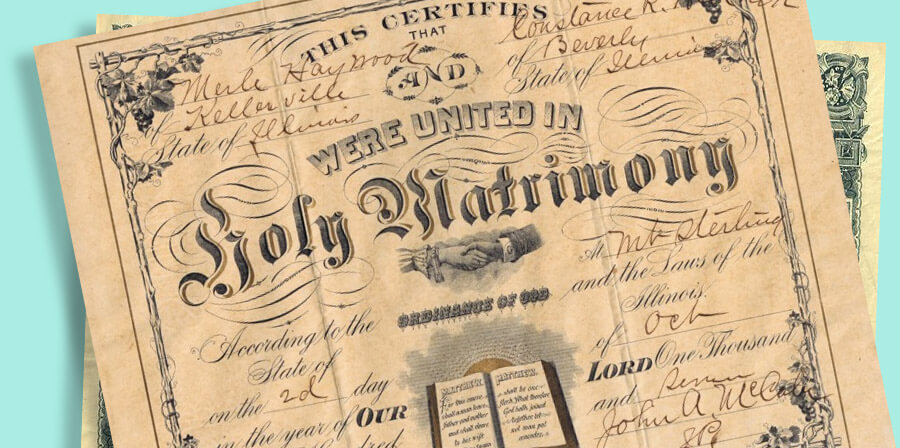 THIS CERTIFIES
THAT
Merle Haywood
of Kellerville
State of Illinois
AND
Constance R.
of Beverly
State of Illinois
WERE UNITED IN
Holy Matrimony
ORDINANCE OF GOD
At Mt Sterling
According to the
and the Laws of the
State of
Illinois.
on the 2d day
of Oct
in the year of OUR
LORD One Thousand
and
MATTHEW.
For this cause
shall a man leave
father and mother
and shall cleave
to his wife
MATTHEW.
shall be one
flesh. What therefore
God hath joined
together, let
not man put
asunder.
John A McCabe
JP